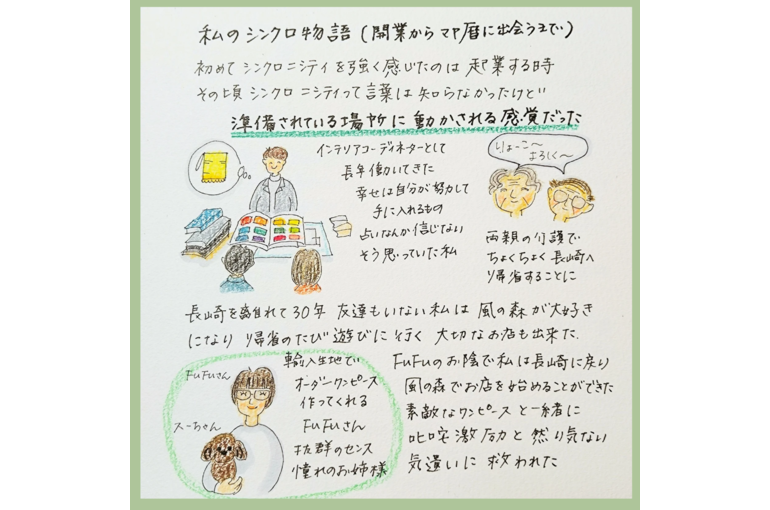 私のシンクロ物語(開業からマヤ暦に出会うまで)
初めてシンクロニシティを強く感じたのは 起業する時
その頃 シンクロニシティって言葉は 知らなかったけど
準備されている場所に動かされる感覚だった
インテリアコーディネーターとして
長年働いてきた
幸せは自分が努力して
手に入れるもの
占いなんか信じない
そう思っていた私
りょーこ〜
よろしく〜
両親の介護で
ちょくちょく長崎へ
帰省することに
長崎を離れて30年 友達もいない私は 風の森が大好き
になり 帰省のたび遊びに行く 大切なお店も出来た.
FuFuさん
スーちゃん
輸入生地で
オーダーワンピース
作ってくれる
FuFuさん
抜群のセンス
憧れのお姉様
FuFuのお陰で私は長崎に戻り
風の森でお店を始めることができた
素敵なワンピースと一緒に
叱咤激励と 然り気ない
気遣いに 救われた